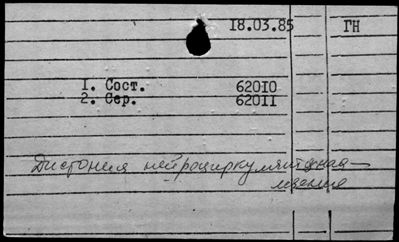 18.03.85 ГН
1. Сост. 62010
2. Сер. 62011
Дистония нейроциркуляторная —